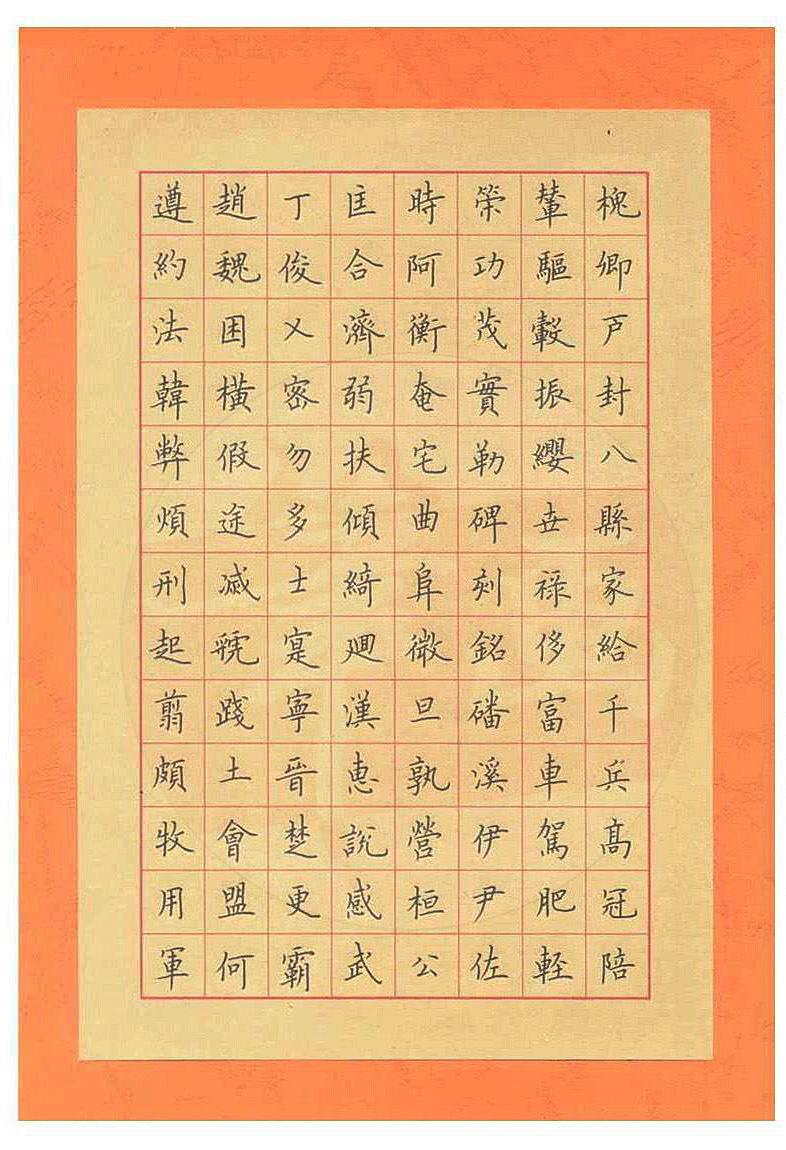 槐卿戶封八縣家給千兵高冠陪
輦驅轂振纓世祿侈富車駕肥輕
策功茂實勒碑刻銘磻溪伊尹佐
時阿衡奄宅曲阜微旦孰營桓公
匡合濟弱扶傾綺廻漢恵說感武
丁俊乂密勿多士寔寧晉楚更霸
趙魏困橫假途滅虢踐土會盟何
遵約法韓弊煩刑起翦頗牧用軍